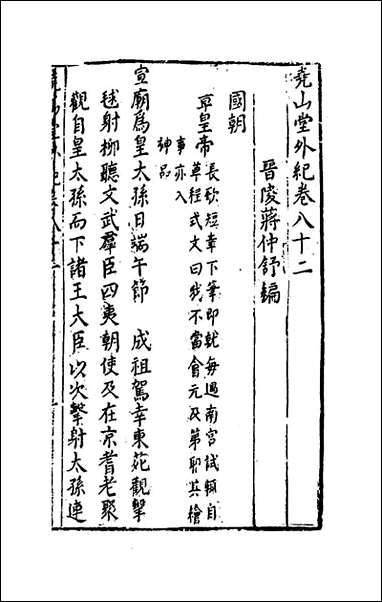 堯山堂外紀卷八十二
晉陵蔣仲舒編
國朝
章皇帝
長歌短章下筆即就每過南宮試輒自
草程式文曰我不當會元及第耶其槍
事亦入
神品
宣廟爲皇太孫日端午節 成祖駕幸東苑觀擊
毬射柳聽文武羣臣四夷朝使及在京耆老聚
觀自皇太孫而下諸王大臣以次擊射太孫連